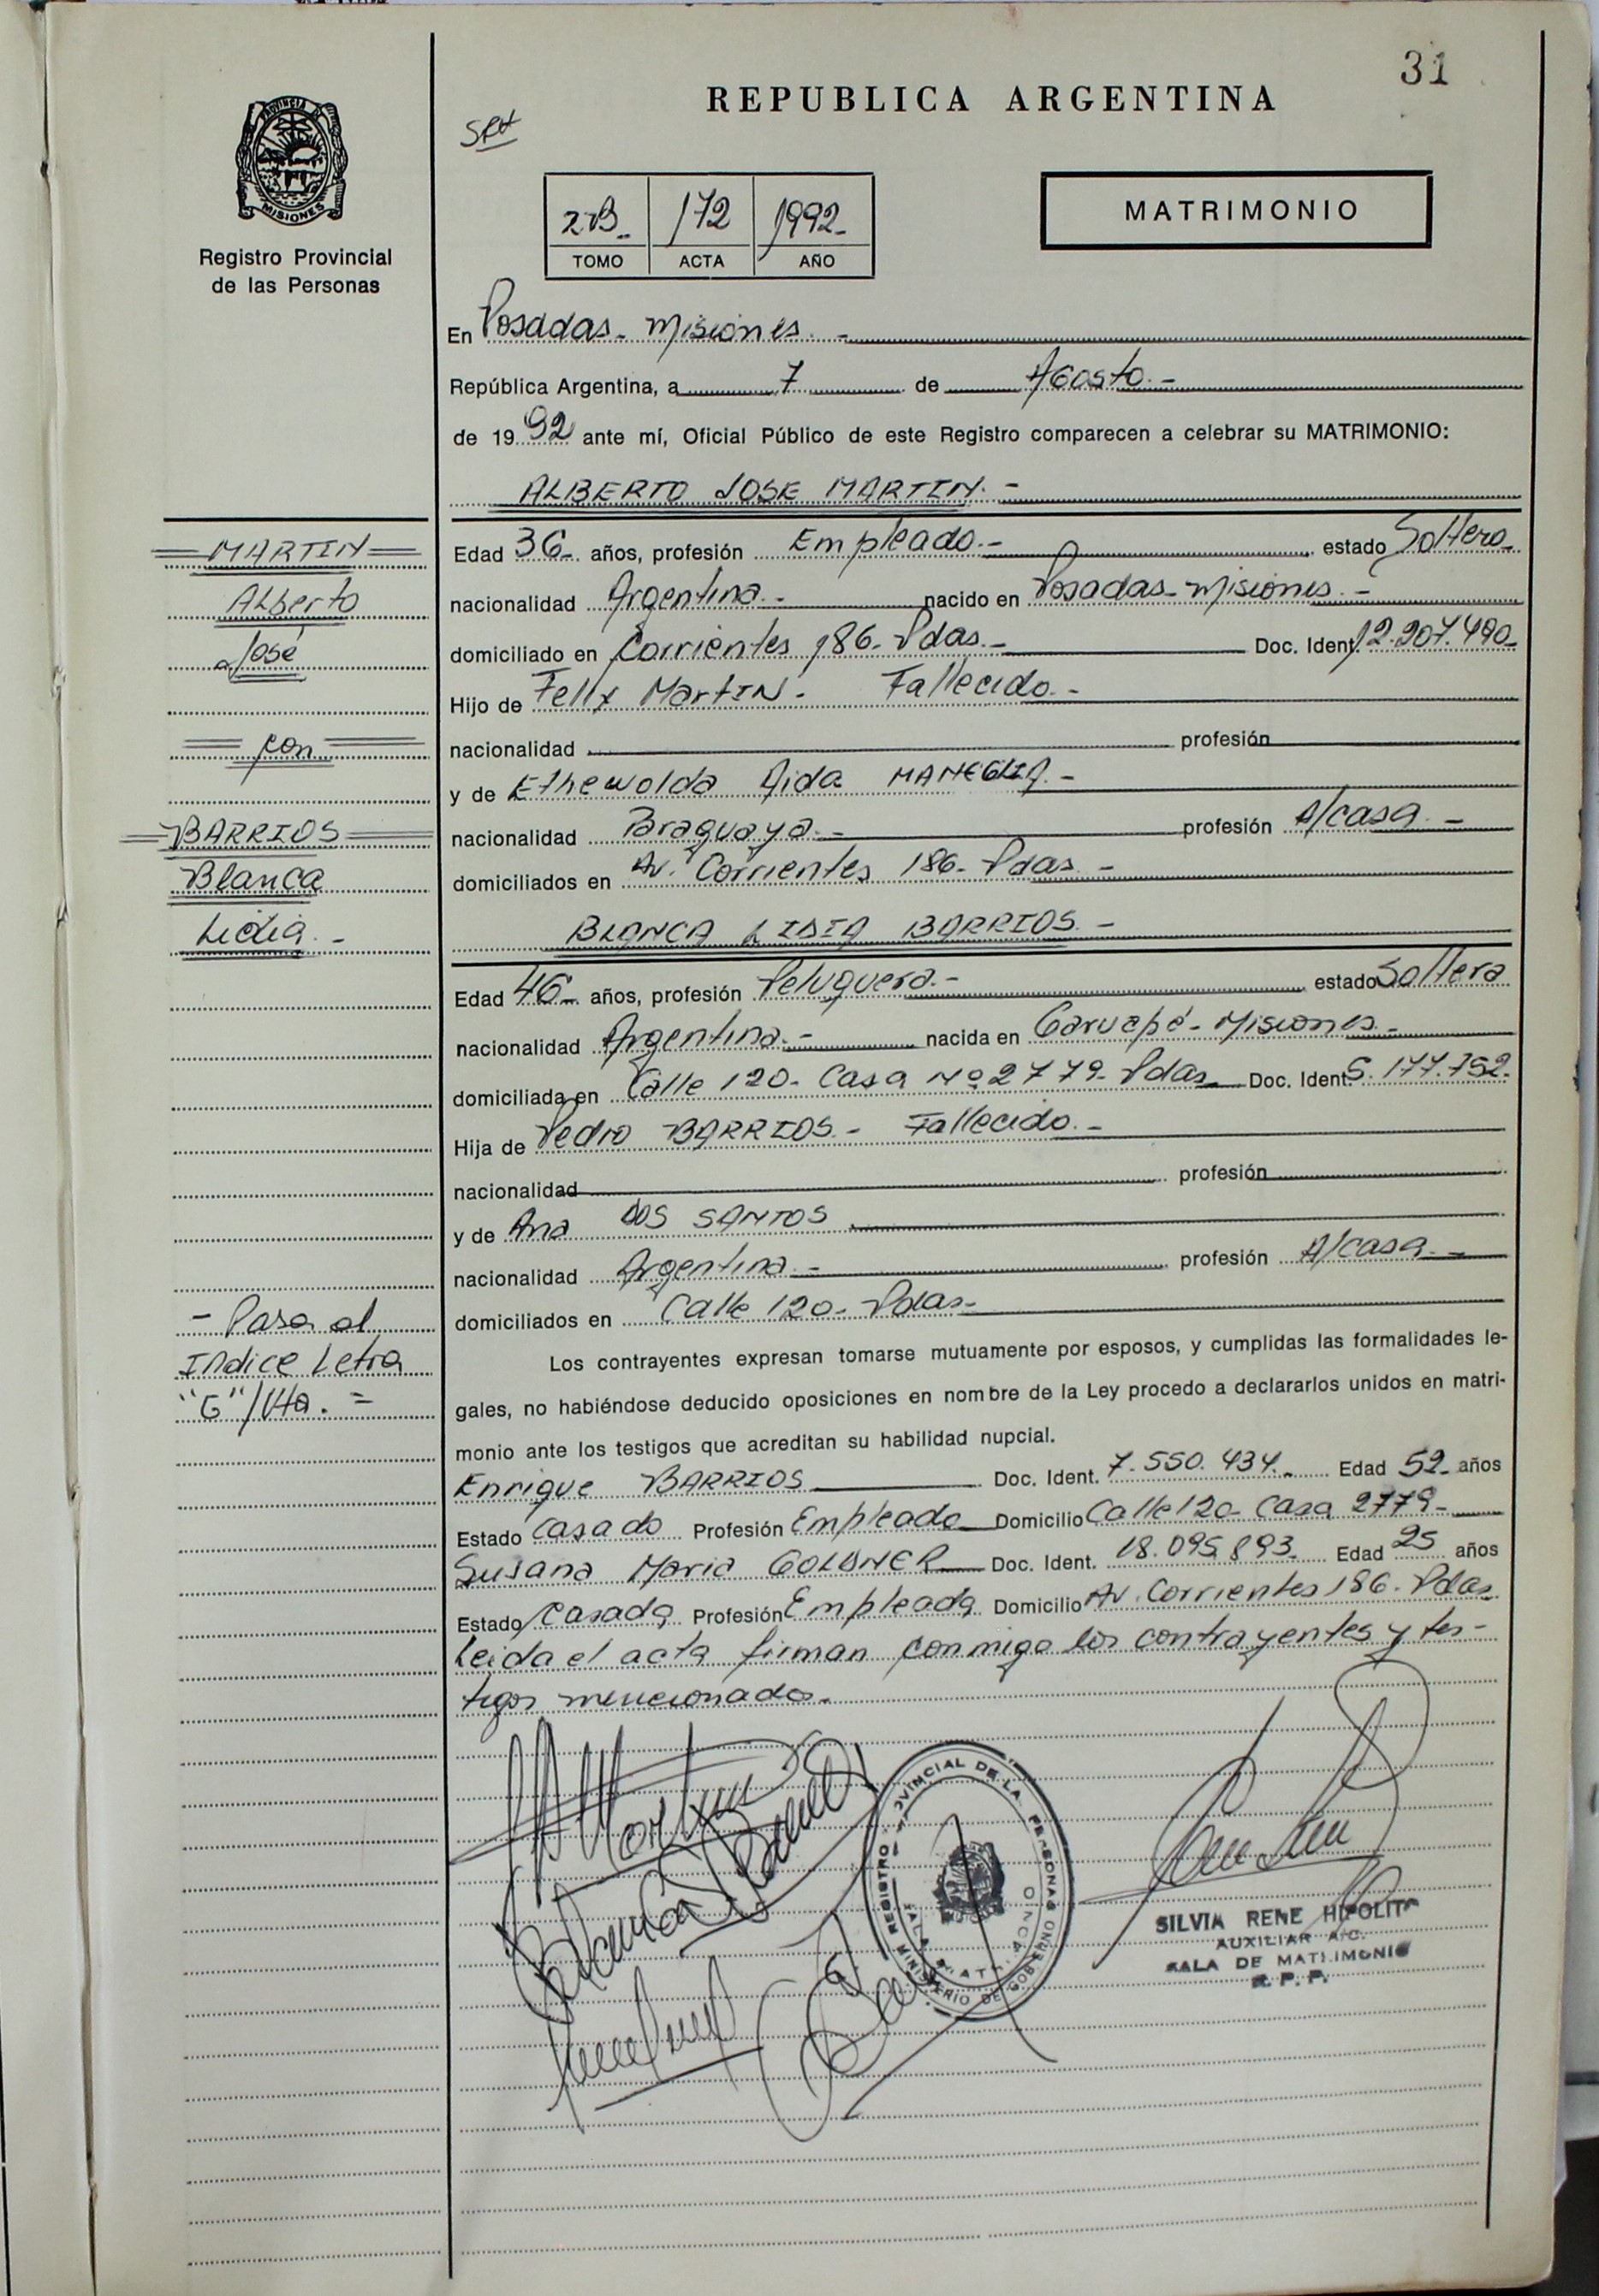 31
REPUBLICA ARGENTINA
PROVINCIA DE
MISIONES
Registro Provincial
de las Personas
2B- 172 1992-
TOMO ACTA AÑO
MATRIMONIO
En Posadas- Misiones.-
República Argentina, a 7 de Agosto.-
de 1992 ante mí, Oficial Público de este Registro comparecen a celebrar su MATRIMONIO:
ALBERTO JOSE MARTIN.-
MARTIN
Alberto
José
con
BARRIOS
Blanca
Lidia.-
- Pasa al
Indice Letra
"G"/Vta.=
Edad 36- años, profesión Empleado.- estado Soltero-
nacionalidad Argentina.- nacido en Posadas- Misiones.-
domiciliado en Corrientes 186- Pdas.- Doc. Ident. 12.907.490-
Hijo de Felix Martin.- Fallecido.-
nacionalidad profesión
y de Ethewolda Aida MANEGLIA.-
nacionalidad Paraguaya.- profesión A/casa.-
domiciliados en Av. Corrientes 186- Pdas.-
BLANCA LIDIA BARRIOS.-
Edad 46- años, profesión Peluquera.- estado Soltera
nacionalidad Argentina.- nacida en Garuapé- Misiones.-
domiciliada en Calle 120- Casa Nº 2779- Pdas- Doc. Ident. 5.177.752-
Hija de Pedro BARRIOS.- Fallecido.-
nacionalidad profesión
y de Ana DOS SANTOS
nacionalidad Argentina.- profesión A/casa.-
domiciliados en Calle 120- Pdas-
Los contrayentes expresan tomarse mutuamente por esposos, y cumplidas las formalidades le-
gales, no habiéndose deducido oposiciones en nombre de la Ley procedo a declararlos unidos en matri-
monio ante los testigos que acreditan su habilidad nupcial.
Enrique BARRIOS Doc. Ident. 7.550.434.- Edad 52- años
Estado Casado Profesión Empleado Domicilio Calle 120- Casa 2779-
Susana Maria GOLDNER Doc. Ident. 18.095.893- Edad 25 años
Estado Casada Profesión Empleada Domicilio Av. Corrientes 186- Pdas.
Leida el acta firman conmigo los contrayentes y tes-
tigos mencionados.-
REGISTRO PROVINCIAL DE LA PERSONAS
MINISTERIO DE GOBIERNO
SILVIA RENE HIPOLITO
AUXILIAR A/C.
SALA DE MATRIMONIO
R. P. P.